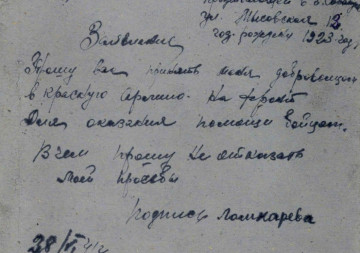 ул. Мысовская 12
год рождения 1923 год.
Заявление
Прошу вас принять меня добровольцем
в красную армию. На фронт
Для оказания помощи бойцам.
В чем прошу не отказать
моей просьбы
подпись
28/VI 41 г